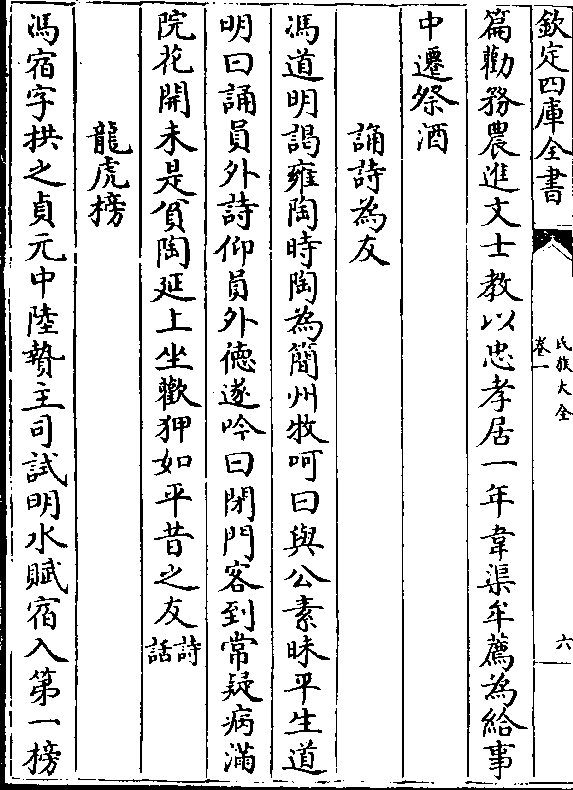 欽定四庫全書
氏族大全
卷一
六
篇勸務農進文士教以忠孝居一年韋渠牟薦為給事
中遷祭酒
誦詩為友
馮道明謁雍陶時陶為簡州牧呵曰與公素昧平生道
明曰誦員外詩仰員外徳遂吟曰閉門客到常疑病滿
院花開未是貧陶延上坐歡狎如平昔之友詩
話
龍虎榜
馮宿字拱之貞元中陸贄主司試明水賦宿入第一榜